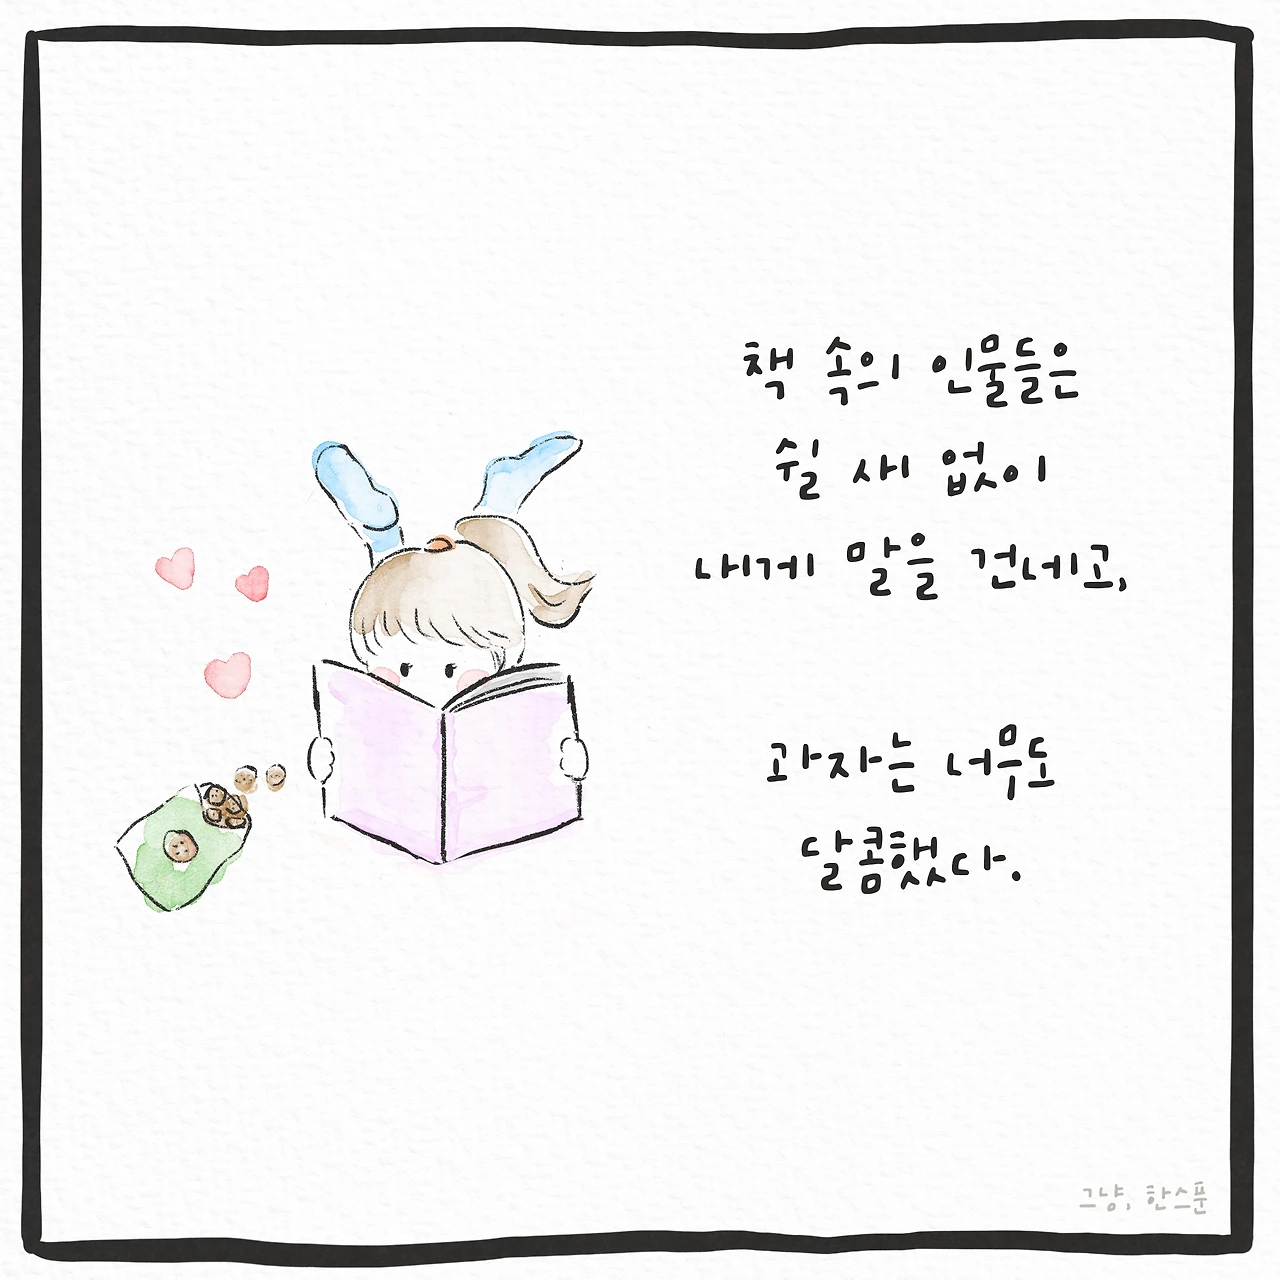 책 속의 인물들은
쉴 새 없이
내게 말을 건네고,
과자는 너무도
달콤했다.
그냥, 한스푼